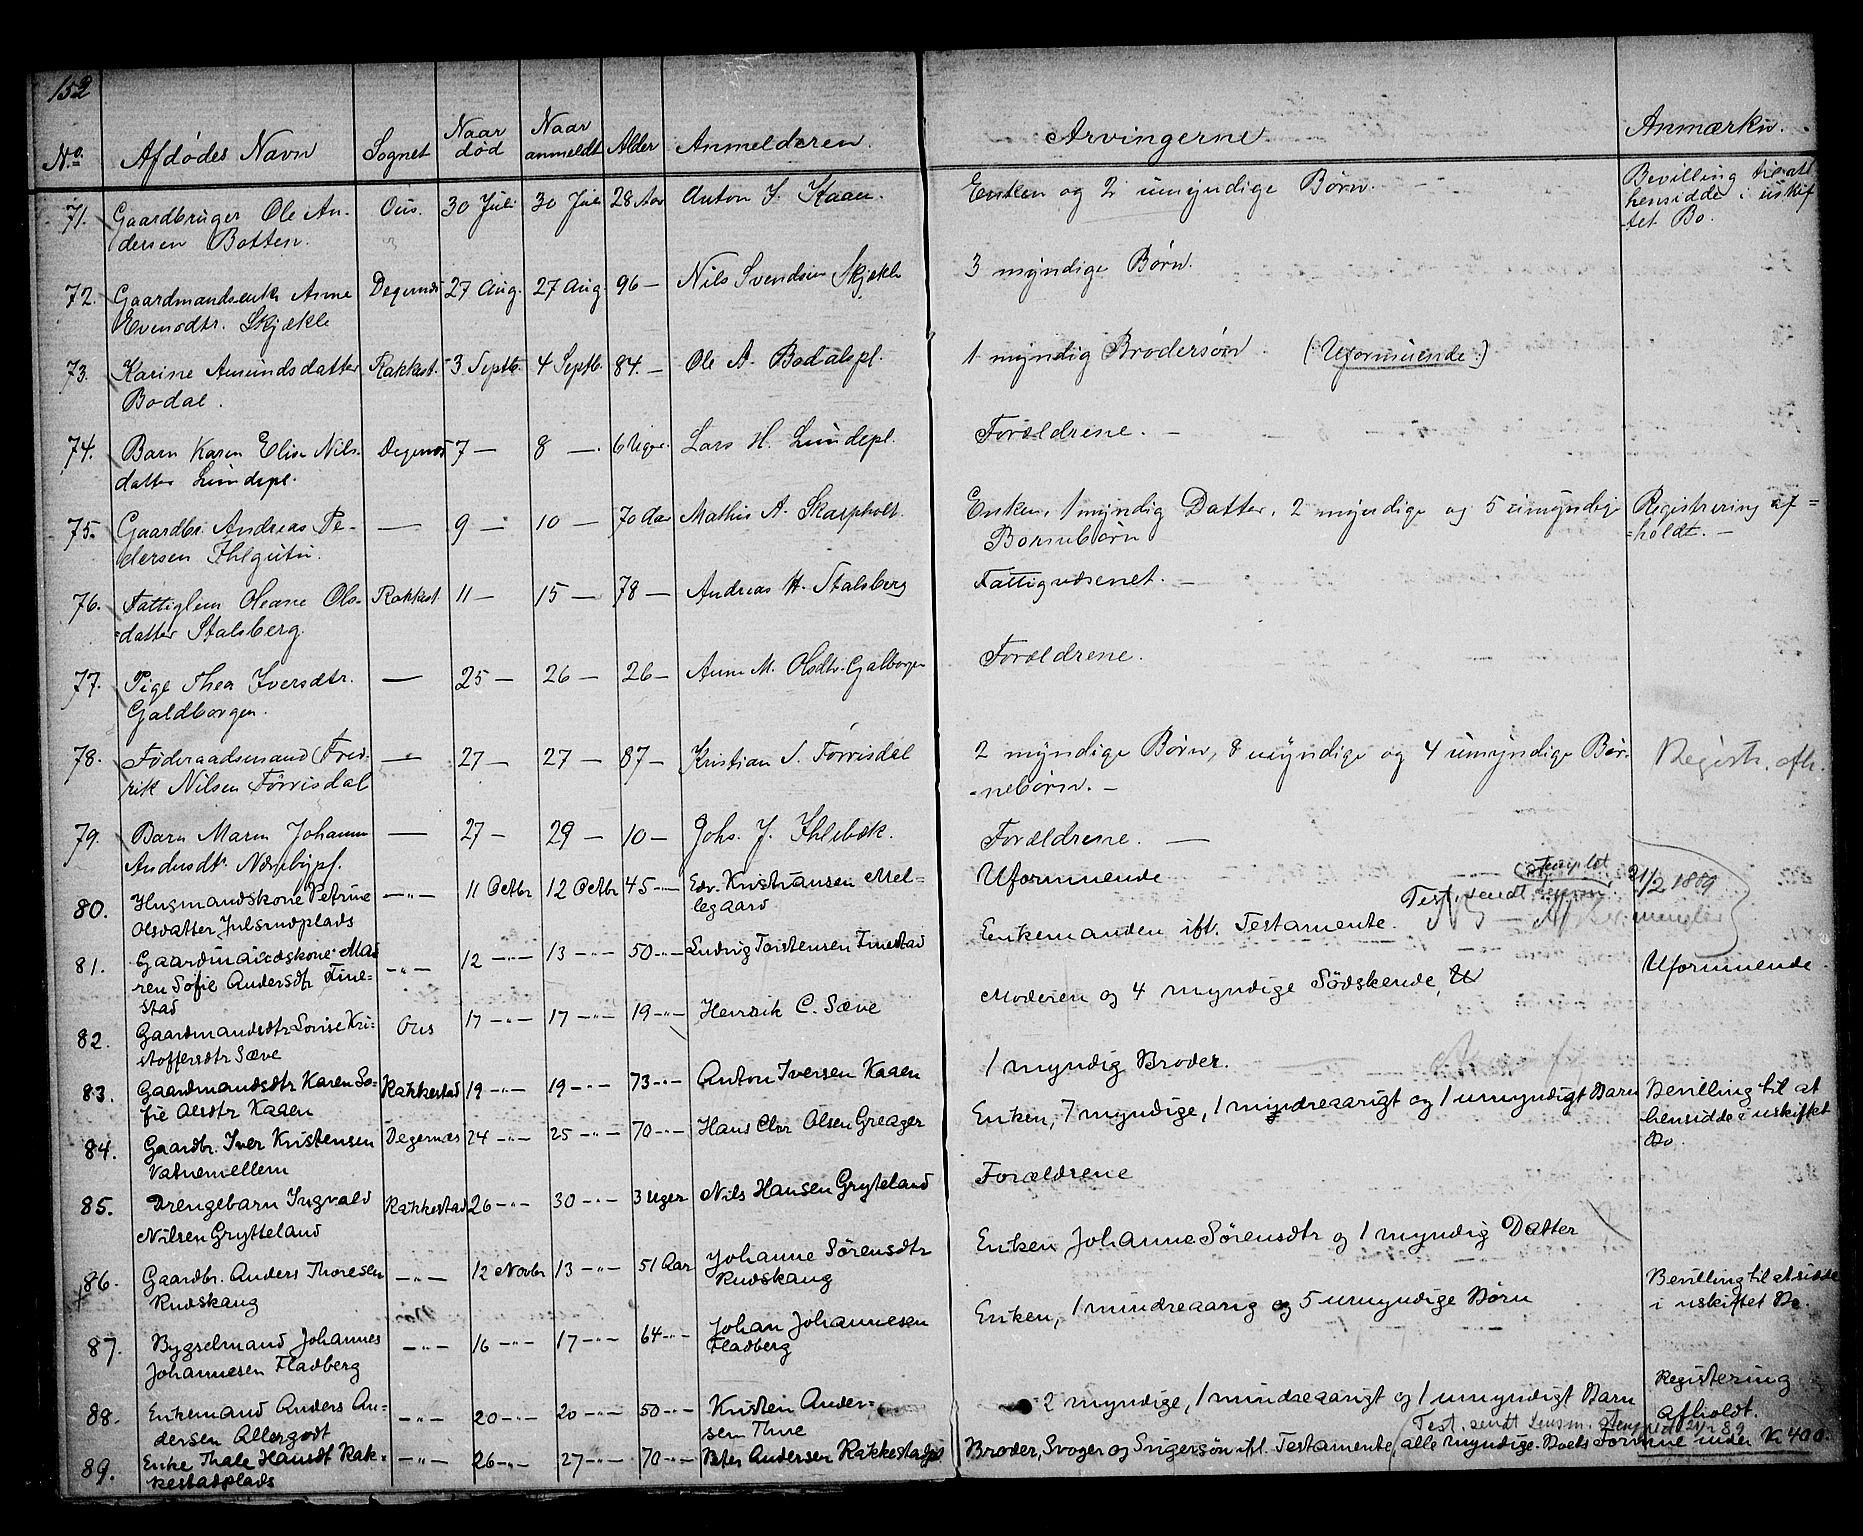 152
No. Afdødes Navn Sognet Naar død Naar anmeldt Alder Anmelderen. Arvingerne. Anmærkn.
71. Gaardbruger Ole An- Ous. 30 Juli 30 Juli 28 Aar Anton I. Kaaen. Enken og 2 umyndige Børn. Bevilling til at
dersen Botten. hensidde i uskif
tet Bo.
72. Gaardmandsenke Anne Degernæs 27 Aug. 27 Aug. 96 — Nils Svendsen Skjækle 3 myndige Børn.
Evensdtr. Skjækle
73. Karine Amundsdatter Rakkest. 3 Septb. 4 Septb. 84 — Ole A. Bodalspl. 1 myndig Brodersøn. (Uformuende.)
Bodal.
74. Barn Karen Elise Nils- Degernæs 7 — 8 — 6 Uger. Lars H. Lundepl. Forældrene. —
datter Lundepl.
75. Gaardbr. Andreas Pe- — 9 — 10 — 70 Aar Mathis A. Skarpholt. Enken, 1 myndig Datter, 2 myndige og 5 umyndige Registrering af=
dersen Ihlgutu. Børnebørn =holdt. —
76. Fattiglem Oleane Ols- Rakkest 11 — 15 — 78 — Andreas H. Stalsberg Fattigvæsenet. —
=datter Stalsberg.
77. Pige Thea Iversdtr. — 25 — 26 — 26 — Anne M. Olsdtr. Galborgen Forældrene.
Galdborgen.
78. Føderaadsmand Fred- — 27 — 27 — 87 — Kristian I. Førrisdal 2 myndige Børn, 8 myndige og 4 umyndige Bør- Registr. afh.
rik Nilsen Førrisdal -nebørn. —
79. Barn Maren Johanne — 27 — 29 — 10 — Johs. J. Ihlebæk. Forældrene. —
Andersdt. Nærebypl.
80. Husmandskone Petrine —"— 11 Octbr 12 Octbr 45 — Edv. Kristiansen Mel= Uformuende
Olsdatter Julsrudplads legaard
Test. sendt 21/2 1889
81. Gaardmandskone Ma —"— 12 —"— 13 —"— 50 —"— Ludvig Torstensen Finestad Enkemanden ifl. Testamente.
ren Sofie Andersdtr Fine=
stad
82. Gaardmandsdtr Lovise Kri= Ous 17 —"— 17 —"— 19 —"— Henrik C. Sæve Moderen og 4 myndige Södskende, U Uformuende.
stoffersdtr Sæve
83. Gaardmandsdtr Karen So= Rakkestad 19 —"— 19 —"— 73 —"— Anton Iversen Kaaen 1 myndig Broder.
fie Olsdtr Kaaen
84. Gaardbr. Iver Kristensen Degernæs 24 —"— 25 —"— 70 —"— Hans Chr Olsen Greager Enken, 7 myndige, 1 mindreaarigt og 1 umyndigt Barn Bevilling til at
Vatnemellem hensidde i uskiftet
Bo.
85. Drengebarn Ingvald Rakkestad 26 —"— 30 —"— 3 Uger Nils Hansen Gryteland Forældrene
Nilsen Grytteland
86. Gaardbr. Anders Thoresen —"— 12 Novbr 13 —"— 51 Aar Johanne Sörensdtr Enken Johanne Sörensdtr og 1 myndig Datter
Rudskaug Rudskaug
87. Bygselmand Johannes —"— 16 —"— 17 —"— 64 —"— Johan Johannesen Enken, 1 mindreaarig og 5 umyndige Börn Bevilling til at sidde
Johannesen Fladberg Fladberg i uskiftet Bo.
88. Enkemand Anders An= —"— 20 —"— 20 —"— 50 —"— Kristen Ander= 2 myndige, 1 mindreaarigt og 1 umyndigt Barn Registering
dersen Allergodt sen Thue Afholdt.
Test. sendt Lensm.
89. Enke Thale Hansdt Rak= —"— 26 —"— 27 —"— 70 —"— Peter Andersen Rakkestadpl Broder, Svoger og Svigersön ifl. Testamente, alle myndige. Boets Formue under K 400.
kestadplads